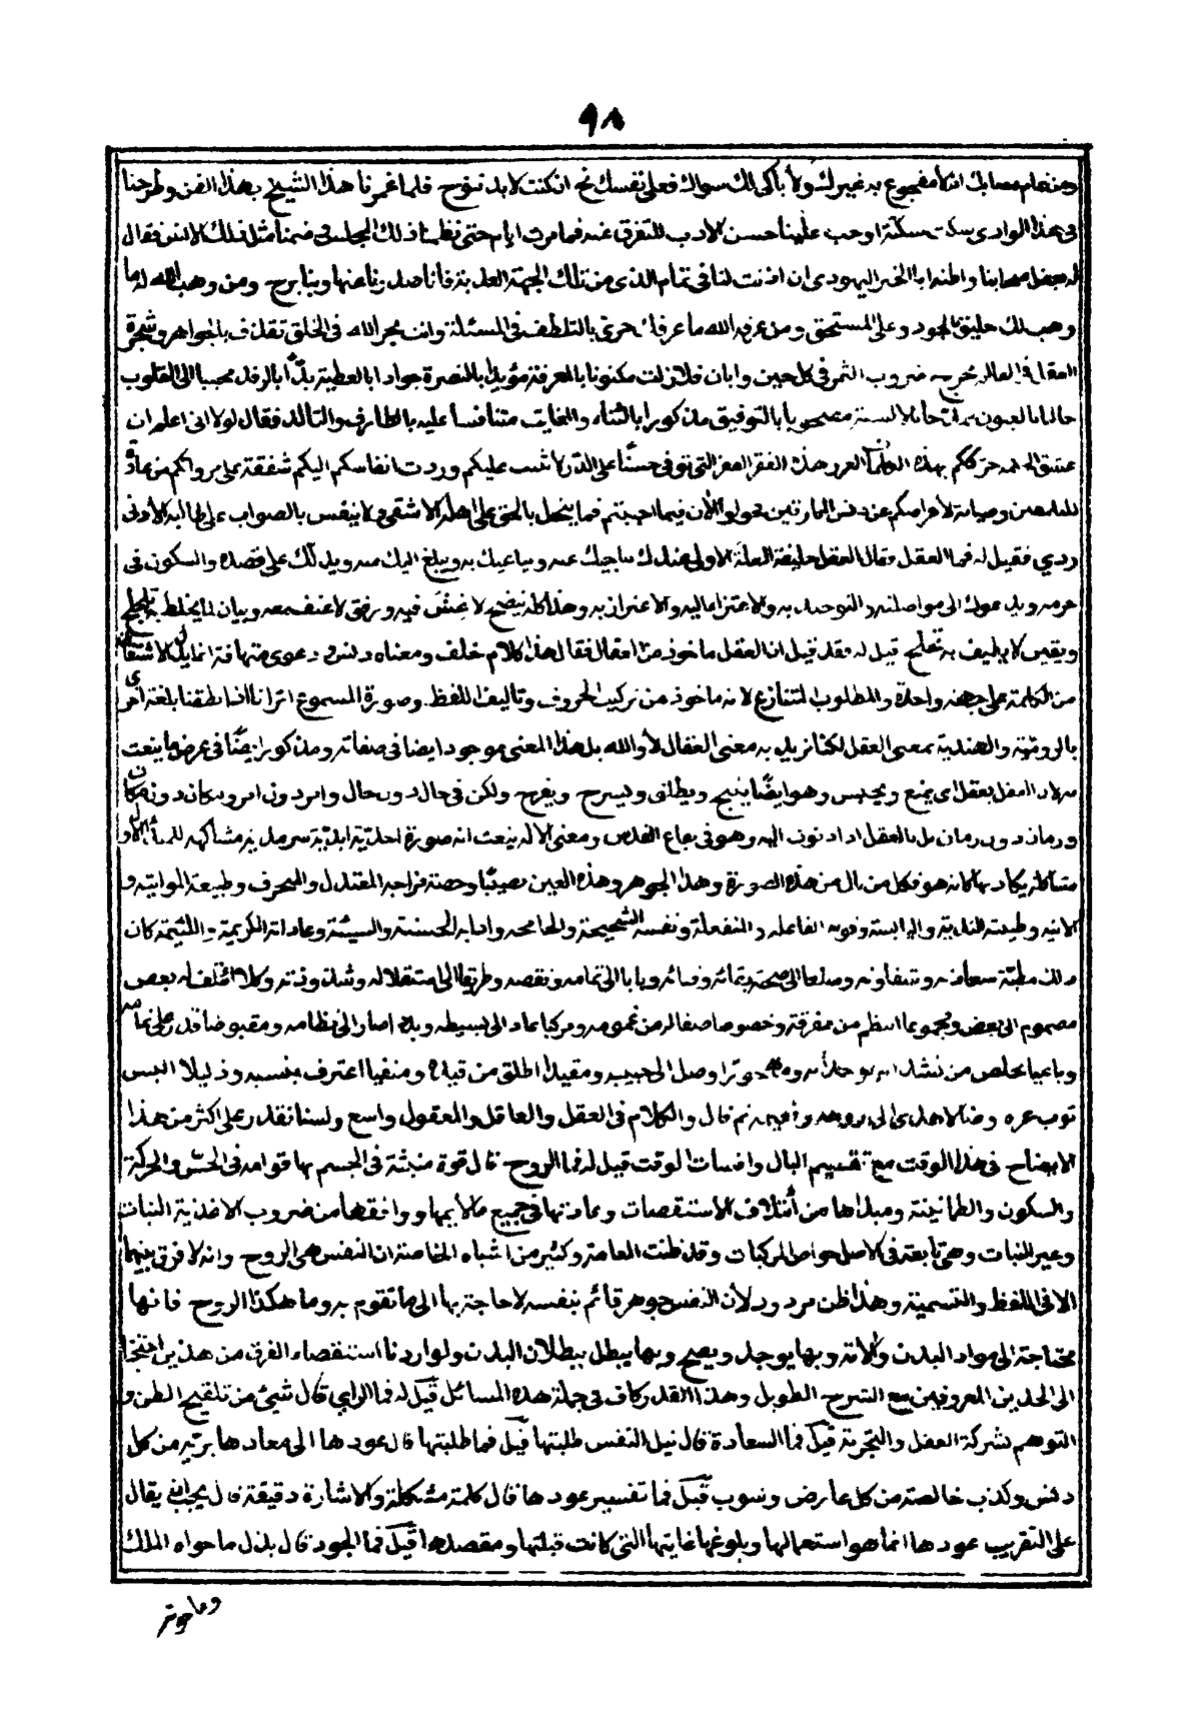 ٩٨
ومن تمام مصابك انك مفجوع به غيرك ولا باكى لك سواك فعلى نفسك نح ان كنت لابد تنوح فلما غمرنا هذا الشيخ بهذا الفن وطرحنا
فى هذا الوادى سكت سكتة اوجب علينا حسن الادب التفرق عنه فما مرت ايام حتى نظمنا ذلك المجلس فى ضمنا مثل ذلك الانس فقال
له بعض اصحابنا واظنه ابا الخير اليهودى ان اذنت لنا فى تمام الذى من تلك الجهة العلية فانا صدرنا عنها وبنا برح ومن وهب الله له ما
وهب لك خليق بالجود وعلى المستحق ومن عرفه الله ما عرفك حرى بالتلطف فى المسئلة وانت بحر الله فى الخلق تقذف بالجواهر وشجرة
العقل فى العالم تخرج ضروب الثمر فى كل حين وابان فلا زلت مكنونا بالمعرفة مؤيدا بالنصرة جوادا بالعطية بذّا با بالرفد محببا الى القلوب
بالعيون بالالسنة مصحوبا بالتوفيق مذكورا بالثناء متنافسا عليه بالطارف والتالد فقال لولا انى اعلم ان
عشق الحكمة حرككم بهذه العرر هذه الفقر التى توفى حسنا على الدّر عليكم وردت انفاسكم اليكم شفقة على
وصيانة لاعراضكم عن دنس المارقين قولوا الآن فيما احببتم فما يبخل بالحق على اهله الا شقى ولا ينفس بالصواب على طالبه الا دنى
ردي فقيل له فما العقل فقال العقل خليفة العلة الاولى عندك يناجيك عنه ويناغيك به ويبلغ اليك منه ويدلك على قصده والسكون فى
حرمه ويدعوك الى مواصلته والتوحد به والاعتزاء اليه والاعتزاز به وهذا كله نصح لا غش فيه ورفق لا عنف معه وبيان لا يخلط به تلجلج
ويقين لا يطيف به تخليج قيل له فقد قيل ان العقل ماخوذ من العقال فقال هذا كلام خلف ومعناه دنس ودعوى متهافة انما يدل الاشتقاق
من الكلمة على جهة واحدة والمطلوب المتنازع لانه ماخوذ من تركيب الحروف وتاليف اللفظ وصورة المسموع اترانا اذا نطقنا بلغة اخرى
بالرومية والهندية بمعنى العقل لكنا نريد به معنى العقال لا والله بل هذا المعنى موجود ايضا فى صفاته ومذكور ايضا فى عرض ما ينعت
به لان العقل يعقل اى يمنع ويحبس وهو ايضا يبيح ويطلق ويسرح ويفرج ولكن فى حال دون حال وامر دون امر ومكان دون مكان
وزمان دون زمان بل العقل اله وهو فى بقاع القدس ومعنى الاله ينعت انه صورة احدية ابدية سرمدية مشاكهة للمبدأ الاول
مشاكلة يكاد بها كانه هو فكل من نال من هذه الصورة وهذا الجوهر وهذه العين نصيبا وحصة مزاجه المعتدل والمنحرف وطبيعته المواتية و
الابية وطينته الندية واليابسة وقوته الفاعلة والمنفعلة ونفسه الشحيحة والجامحة وادابه الحسنة والسيئة وعاداته الكريمة واللئيمة كان
ذلك مظنة سعادته وشقاوته ومبلغا الى صحته بقائه وفنائه وبابا الى تمامه ونقصه وطريقا الى استقلاله وشدته وكلا ائتلف له بعض
مضموم الى بعض ومجموعا انتظم من مفرقة وخصوصا صفا له من عمومه ومركبا عاد الى بسيطه وبددا صار الى نظامه ومقبوضا قدر على تمامه
وباغيا تخلص من وصل الى حبيبه ومقيدا اطلق من قيده ومنفيا اعترف بنسبه وذليلا البس
ثوب عزه وضالا هدى الى روحه ثم قال والكلام فى العقل والعاقل والمعقول واسع ولسنا نقدر على اكثر من هذا
الايضاح فى هذا الوقت مع تقسيم البال وافسات الوقت قيل له فما الروح قال قوة منبثة فى الجسم بها قوامه فى الحس والحركة
والسكون والطمانينة ومبداها من ائتلاف الاستقصات ومادتها فى جميع ما لايمها ووافقها من ضروب الاغذية النبات
وغير النبات وهى تابعة فى الاصل خواص المركبات وقد ظنت العامة وكثير من اشباه الخاصة ان النفس هى الروح وانه لا فرق بينهما
الا فى اللفظ والتسمية وهذا ظن مردود لان النفس جوهر قائم بنفسه لا حاجة بها الى ما تقوم به وما هكذا الروح فانها
محتاجة الى مواد البدن والاته وبها يوجد ويصح وبها يبطل ببطلان البدن ولو اردنا استقصاء الفرق من هذين احتجنا
الى الحدين المعروفين مع الشرح الطويل وهذا القدر كاف فى جملة هذه المسائل قيل له فما الراي قال شيئ من تلقيح الظن و
التوهم بشركة العقل والتجربة قيل فما السعادة قال نيل النفس طلبتها قيل فما طلبتها قال عودها الى معادها بريّة من كل
دنس وكذب خالصة من كل عارض وشوب قيل فما تفسير عودها قال كلمة مشكلة والاشارة دقيقة قال يجب ان يقال
على التقريب عودها انما هو استعمالها وبلوغها غايتها التى كانت قبلتها ومقصدها قيل فما الجود قال بذل ما حواه الملك